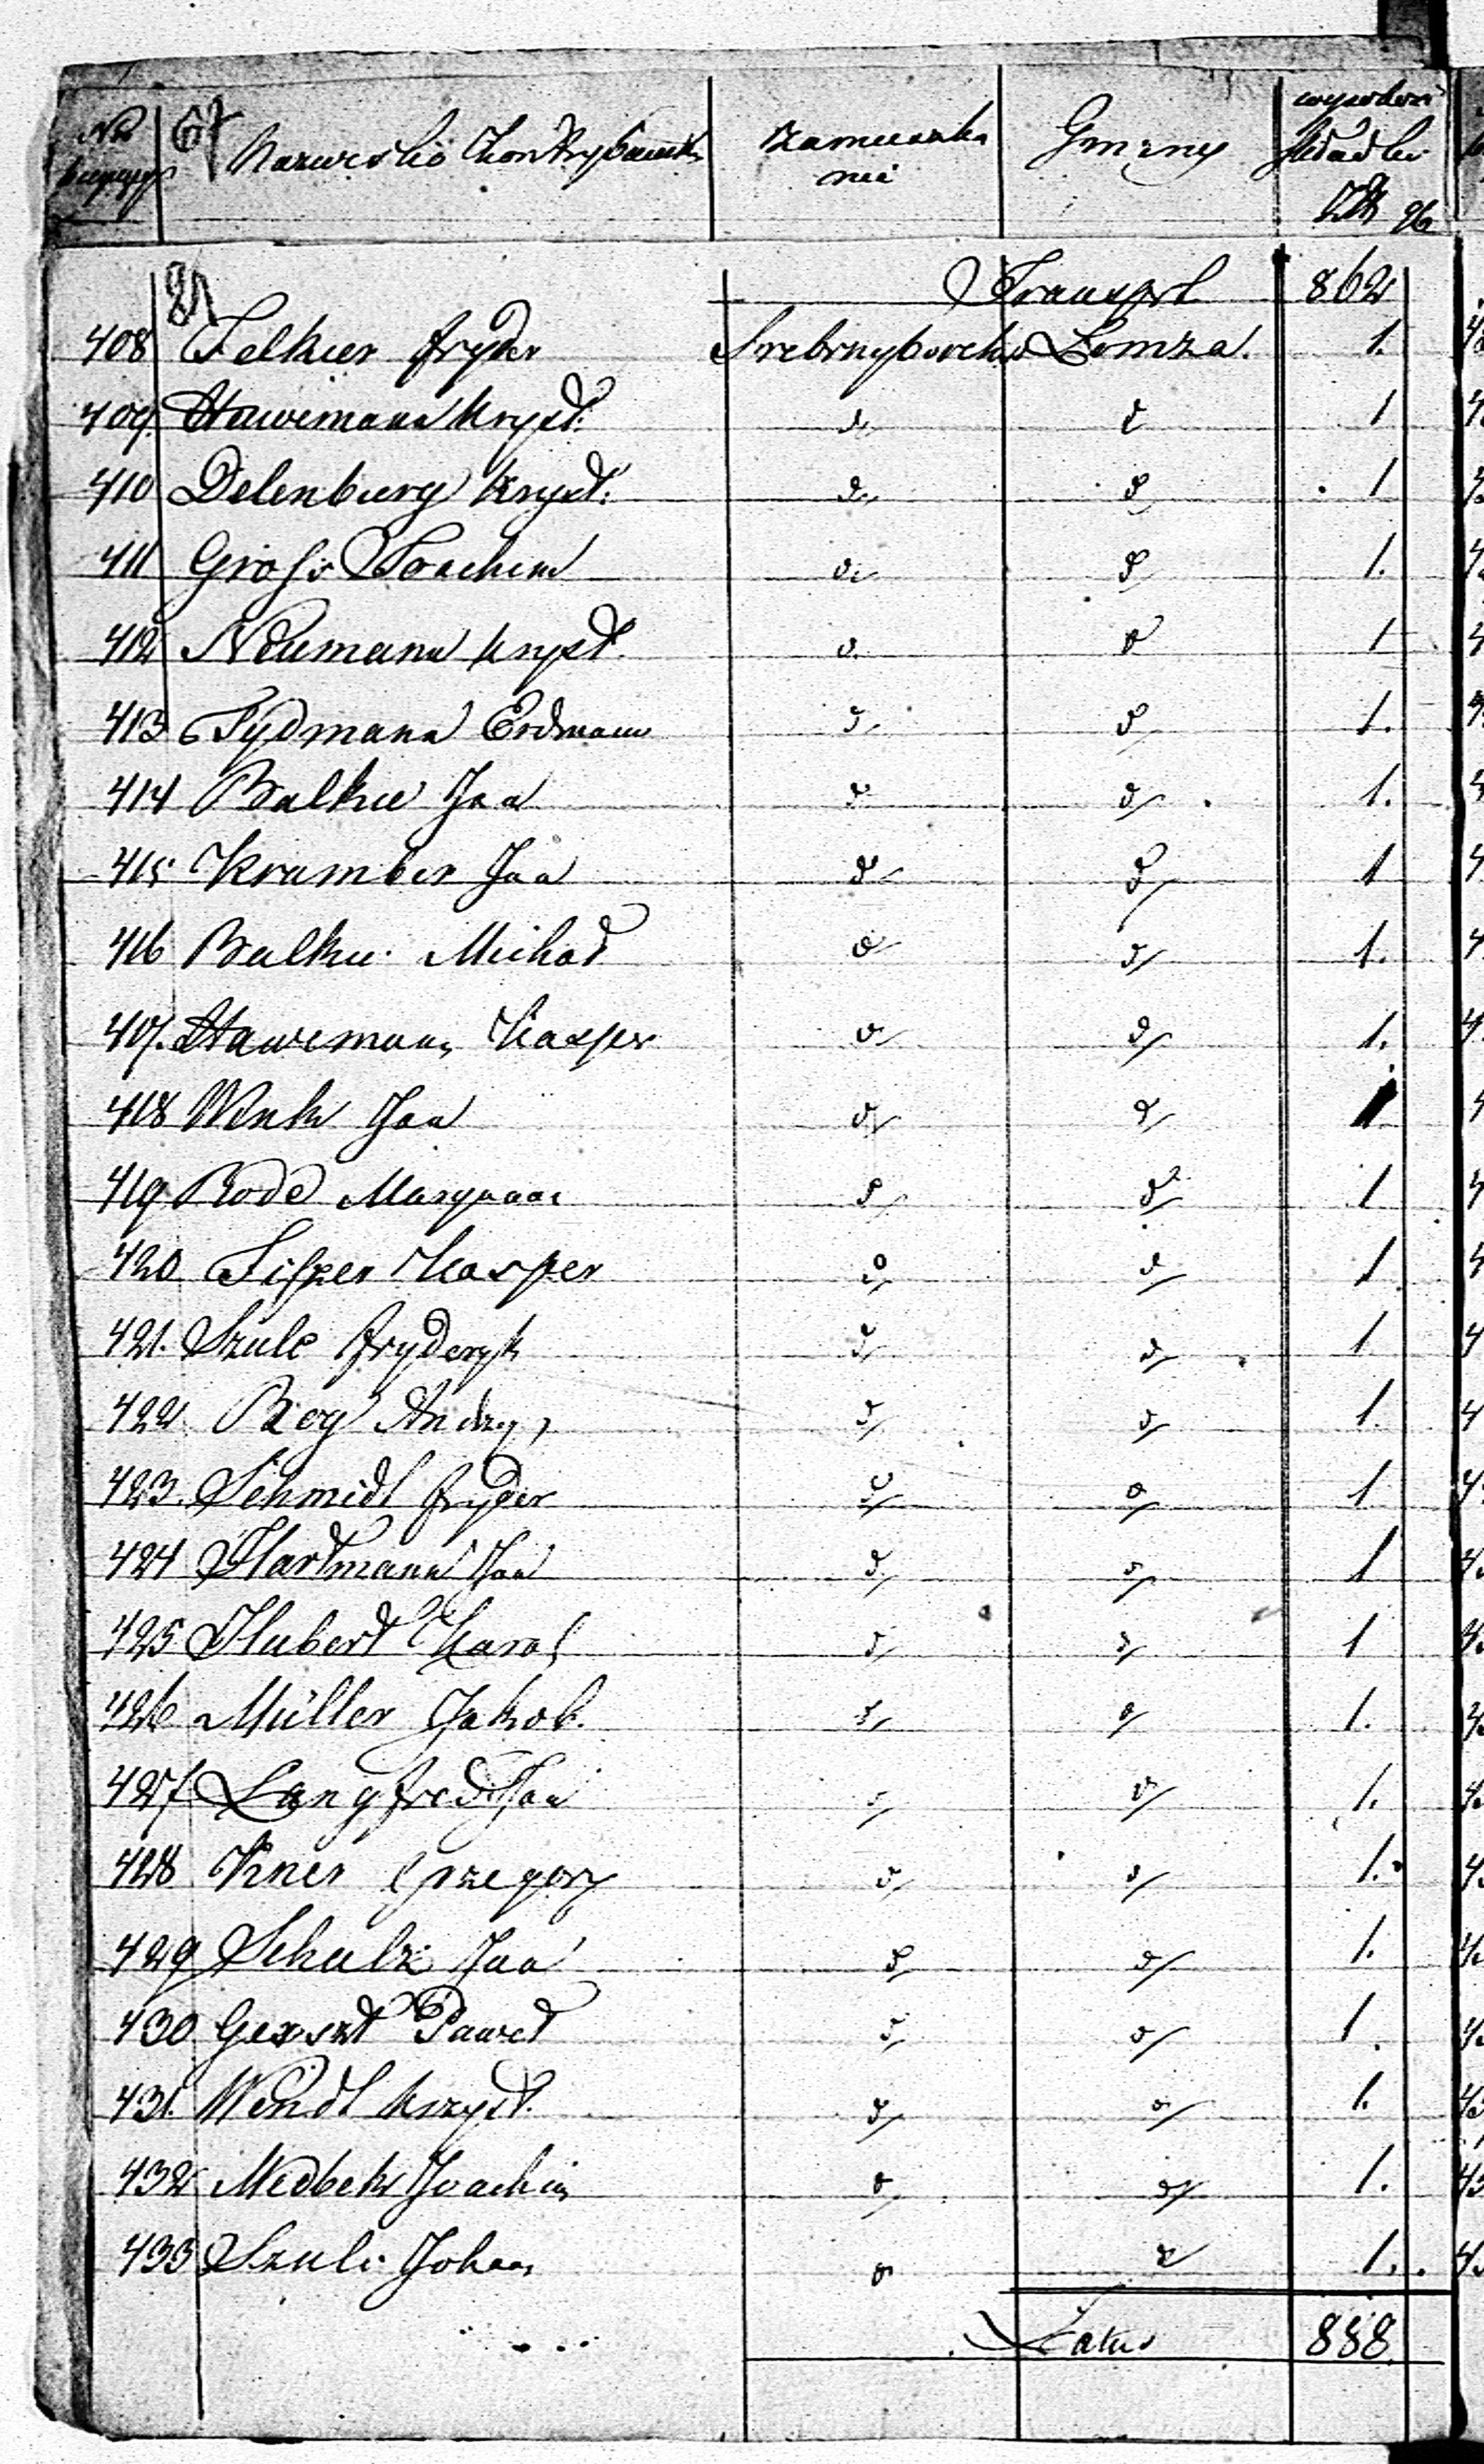 Nro bieżący 67 Nazwisko Kontrybuenta Zamieszkanie Gminy wysokość składki
Transprt 862
81
408 Felkier fryder Srebrnyborek Łomza. 1.
409. Hawemann Kryst: d d 1
410 Delenburg Kryst: d d 1
411 Gross Joachim d d 1.
412 Neumann Kryst. d d 1
413 Tydmann Erdmann d d 1.
414 Balkie Jan d d 1.
415 Krambier Jan d d 1
416 Balkie Michał d d 1.
417. Hawemann Kasper d d 1.
418 Wink Jan d d 1
419 Rode Maryann d d 1
420 Fiszer Kasper d d 1
421. Szulc fryderyk d d 1
422 Rog Andrzy d d 1.
423. Schmidt fryder d d 1
424 Hartmann Jan d d 1
425 Hubert Karol d d 1
426 Müller Jakob. d d 1.
427 Langfred Jan d d 1.
428 Kner Grzegorz d d 1.
429 Schulz Jan d d 1.
430 Gexszt Paweł d d 1.
431. Wendt Krzyst. d d 1.
432 Medbek Joachim d d 1.
433 Szulc Johan d d 1.
Latus 888.